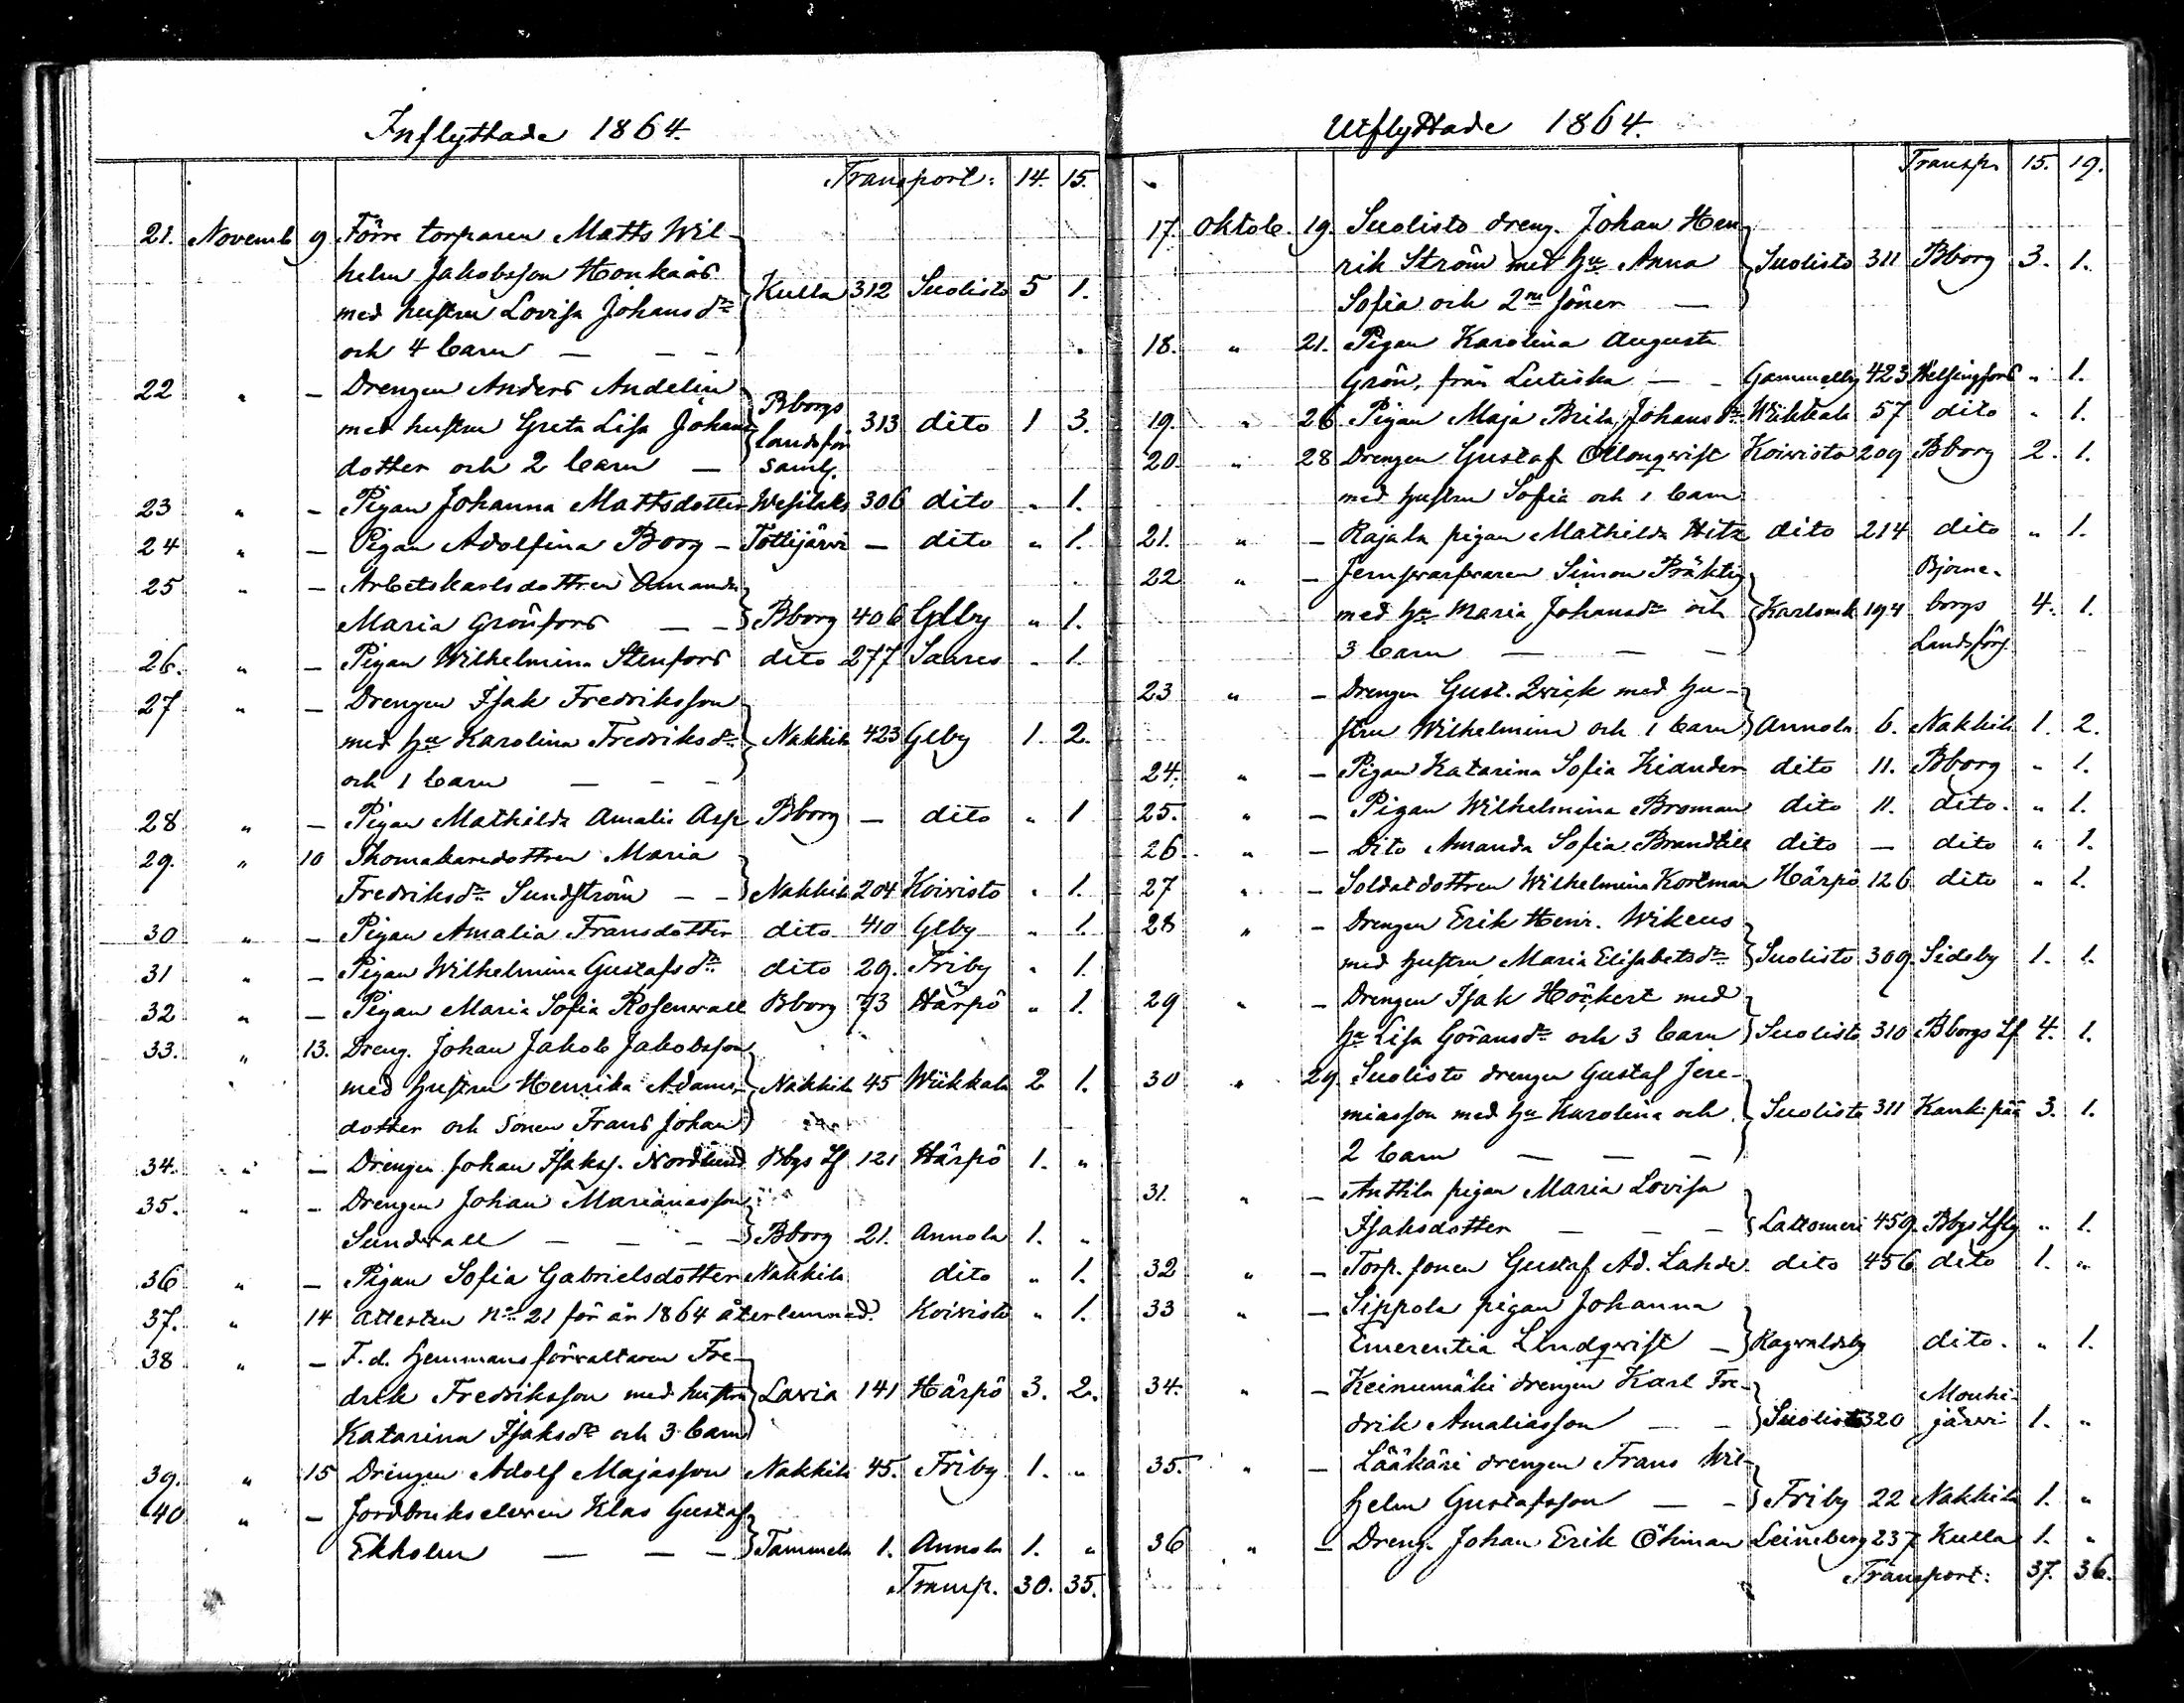 Inflyttade 1864.
Transport: 14. 15.
21. Novemb 9 Förre torparen Matts Wil-
helm Jakobsson Honkaås
med hustru Lovisa Johansdr Kulla 312 Suolisto 5 1.
och 4 barn — — —
22 " — Drengen Anders Andelin
med hustru Greta Lisa Johans Bborgs landsför 313 dito 1 3.
dotter och 2 barn — saml.
23 " — Pigan Johanna Mattsdotter Wesilaks 306 dito " 1.
24 " — Pigan Adolfina Borg — Tottijärvi — dito " 1.
25 " — Arbetskarlsdottren Amanda
Maria Grönfors — — Bborg 406 Glby " 1.
26. " — Pigan Wilhelmina Stenfors dito 277 Saares " 1.
27 " — Drengen Isak Fredriksson
med hu Karolina Fredriksdr Nakkila 423 Glby 1. 2.
och 1 barn — — —
28 " — Pigan Mathilda Amalia Asp Bborg — dito " 1
29. " 10 Skomakaredottren Maria
Fredriksdr Sundström — — Nakkila 204 Koivisto " 1.
30 " — Pigan Amalia Fransdotter dito 410 Glby " 1.
31 " — Pigan Wilhelmina Gustafsdr dito 29. Friby " 1.
32 " — Pigan Maria Sofia Rosenwall Bborg 73 Härpö " 1.
33. " 13. Dreng. Johan Jakob Jakobsson
med hustru Henrika Adams- Nakkila 45 Wiikkala 2 1.
dotter och sonen Frans Johan
34. " — Drengen Johan Isaks. Nordlund Bbgs Lf 121 Härpö 1. "
35. " — Drengen Johan Mariasson
Sundvall — — — Bborg 21. Annola 1. "
36 " — Pigan Sofia Gabrielsdotter Nakkila dito " 1.
37. " 14 Attesten No 21 för år 1864 återlemnad. Koivisto " 1.
38 " — F.d. Hemmansförvaltaren Fre-
drik Fredriksson med hustru Lavia 141 Härpö 3. 2.
Katarina Isaksdr och 3 barn
39. " 15 Drengen Adolf Majasson Nakkila 45. Friby 1. "
40 " — Jordbrukseleven Klas Gustaf
Ekholm — — — Tammela 1. Annola 1. "
Transp. 30. 35.
Utflyttade 1864.
Transp. 15. 19.
17. Oktob. 19. Suolisto dreng. Johan Hen
rik Ström med hu Anna Suolisto 311 Bborg 3. 1.
Sofia och 2ne söner —
18. " 21. Pigan Karolina Augusta
Grön, från Lutiska — — Gammelby 423 Helsingfors " 1.
19. " 26 Pigan Maja Brita Johansdr Wiikkala 57 dito " 1.
20. " 28 Drengen Gustaf Ollonqwist Koivisto 209 Bborg 2. 1.
med hustru Sofia och 1 barn
21. " — Rajala pigan Mathilda Witz dito 214 dito " 1.
22 " — Jernswarfwaren Simon Präktig Bjorne-
med hu Maria Johansdr och Karlsmk 194 borgs 4. 1.
3 barn — — — Landsförs.
23 " — Drengen Gust. Qvick med hu-
stru Wilhelmina och 1 barn Annola 6. Nakkila 1. 2.
24. " — Pigan Katarina Sofia Kiander dito 11. Bborg " 1.
25. " — Pigan Wilhelmina Broman dito 11. dito. " 1.
26. " — Dito Amanda Sofia Brandtill dito — dito " 1.
27 " — Soldatdottren Wilhelmina Kortman Härpö 126 dito " 1.
28 " — Drengen Erik Henr. Wikeus
med hustru Maria Elisabetsdr Suolisto 309. Sideby 1. 1.
29 " — Drengen Isak Höckert med
hu Lisa Göransdr och 3 barn Suolisto 310 Bborgs Lf 4. 1.
30 " 29 Suolisto drengen Gustaf Jere-
miasson med hu Karolina och Suolisto 311 Kank:pää 3. 1.
2 barn — — —
31. " — Anttila pigan Maria Lovisa
Isaksdotter — — — Lattomeri 459. Bbgs Lfsg " 1.
32 " — Torp. sonen Gustaf Ad. Lahde. dito 456 dito 1. "
33 " — Sippola pigan Johanna
Emerentia Lindqwist — Ragvaldsby dito. " 1.
34. " — Keinumäki drengen Karl Fre- Mouhi-
drik Amaliasson — — Suolisto 320 järvi 1. "
35. " — Lääkäri drengen Frans Wil-
helm Gustafsson — — Friby 22 Nakkila 1. "
36 " — Dreng. Johan Erik Öhman Leineberg 237 Kulla 1. "
Transport: 37. 36.